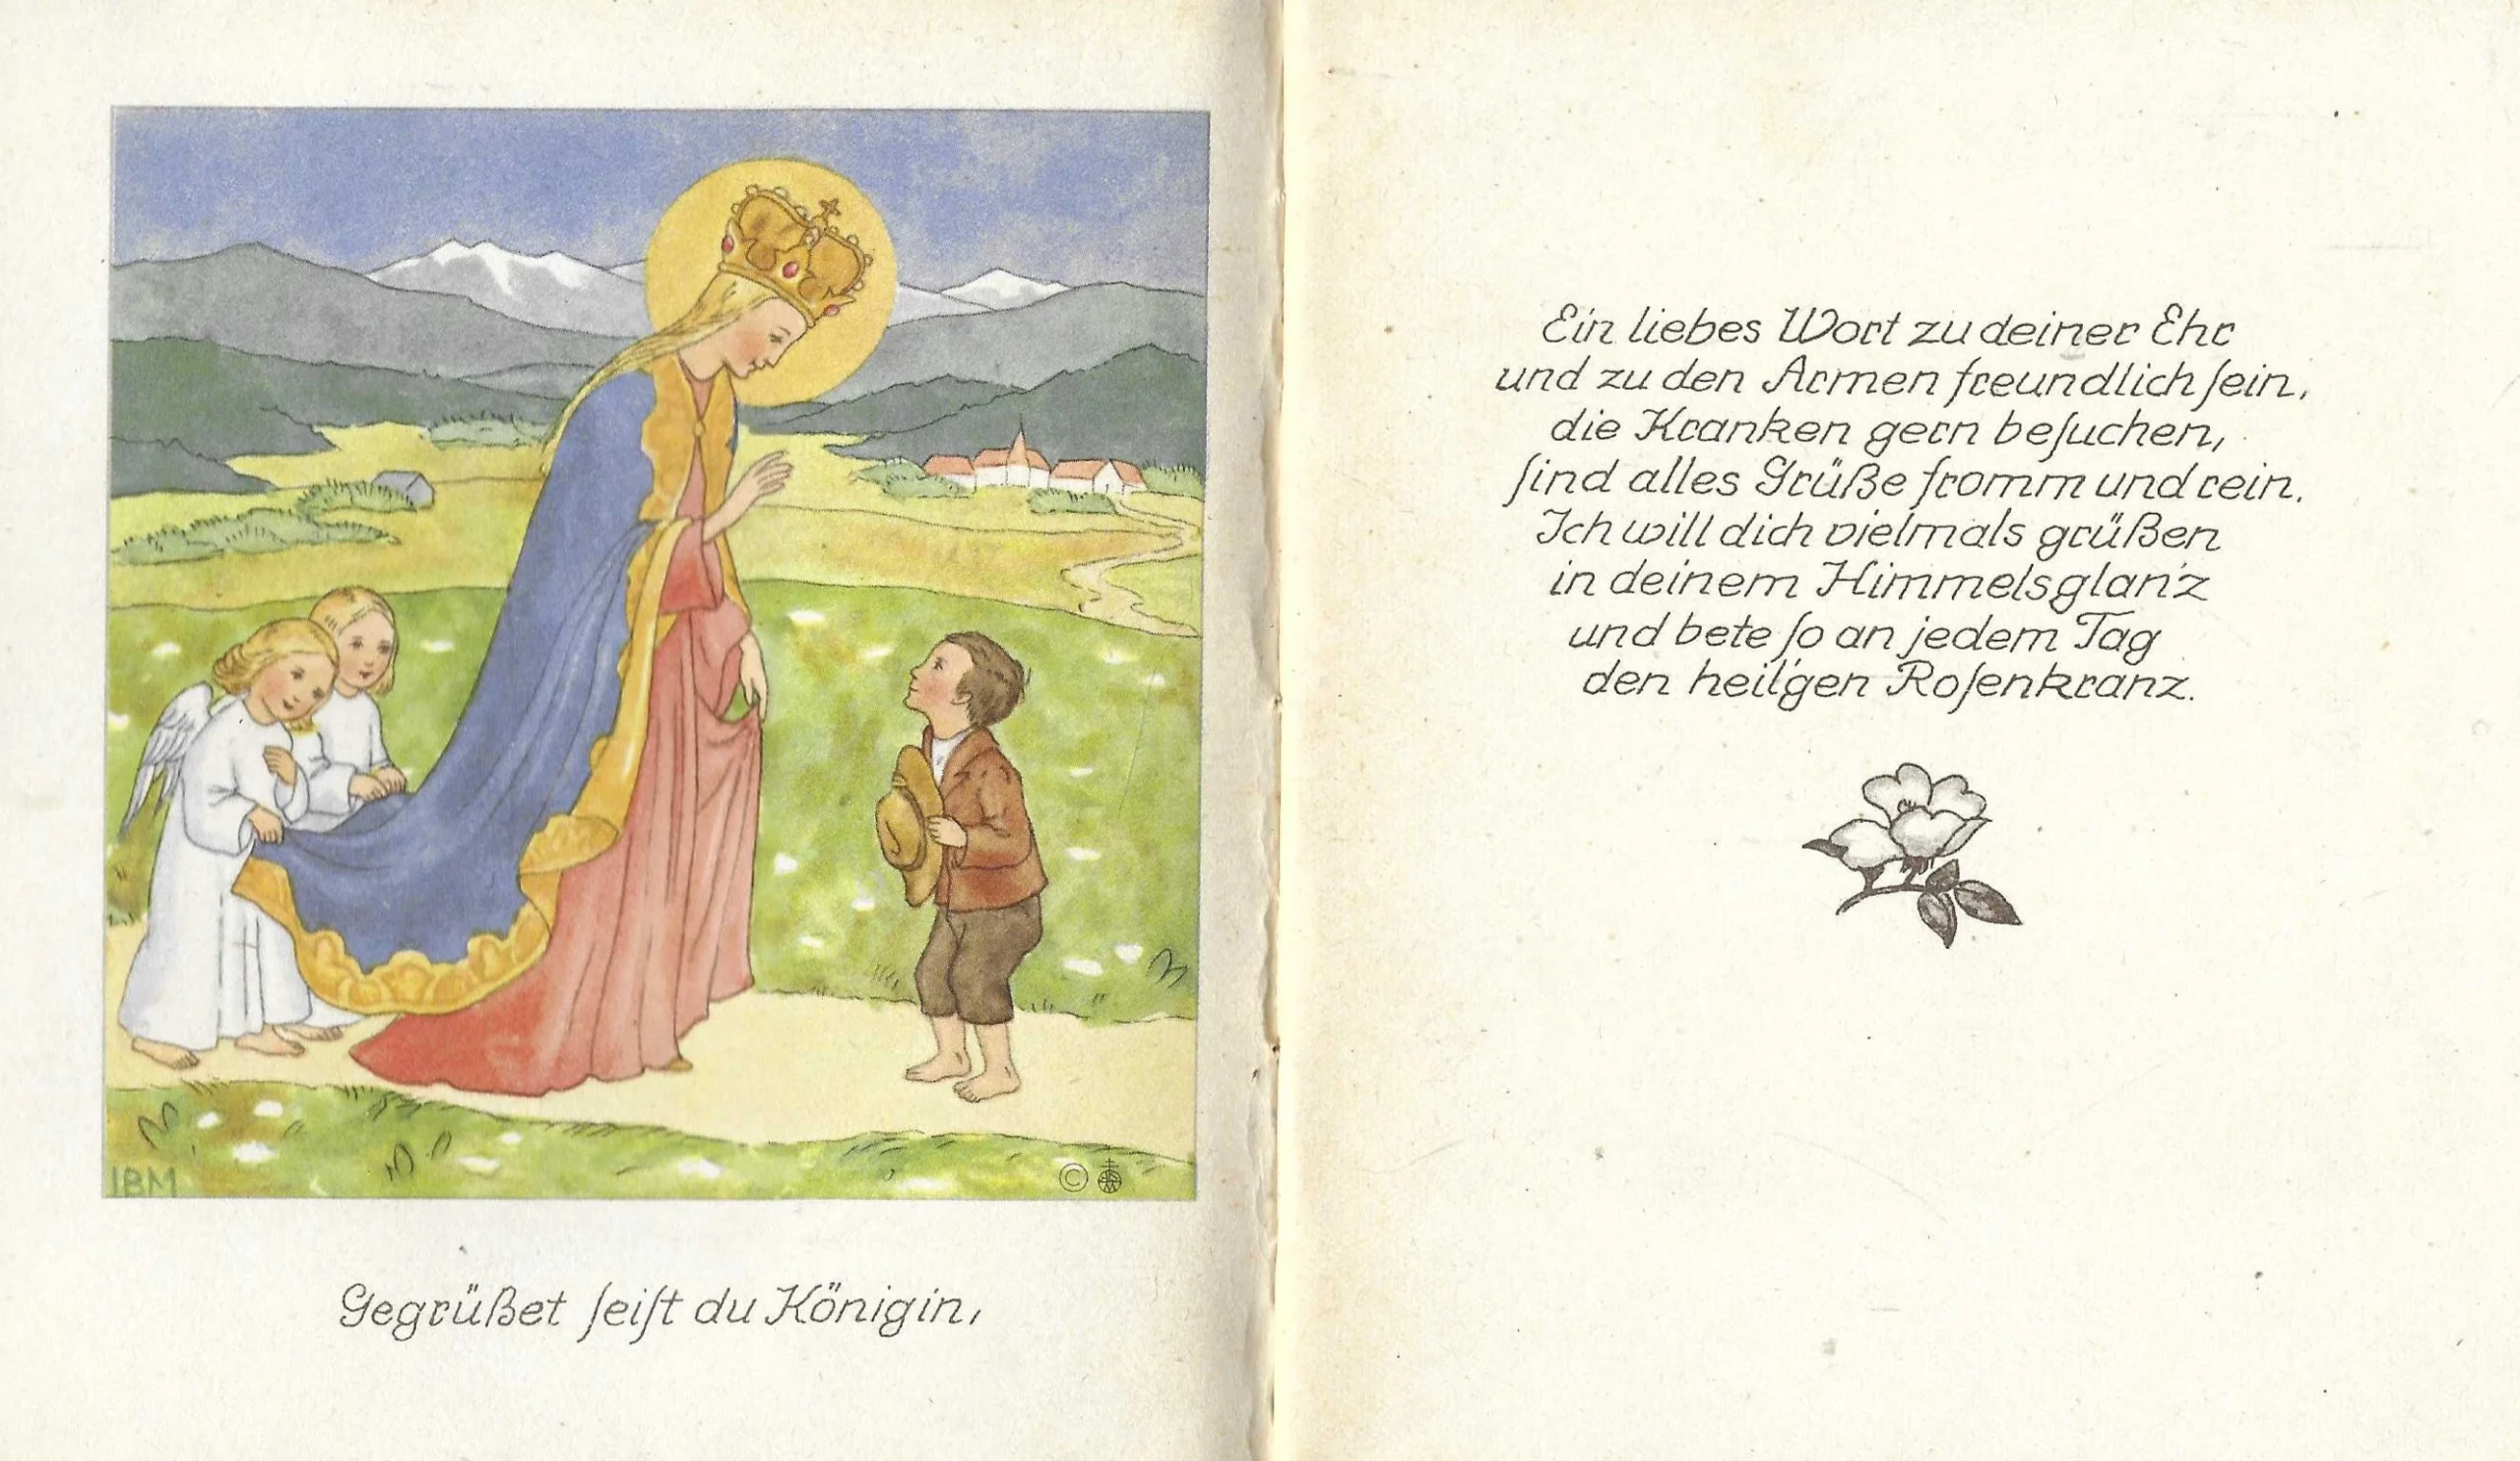 IBM
©
Gegrüßet ſeiſt du Königin,
Ein liebes Wort zu deiner Ehr
und zu den Armen freundlich ſein,
die Kranken gern beſuchen,
ſind alles Grüße fromm und rein.
Ich will dich vielmals grüßen
in deinem Himmelsglanz
und bete ſo an jedem Tag
den heil'gen Roſenkranz.